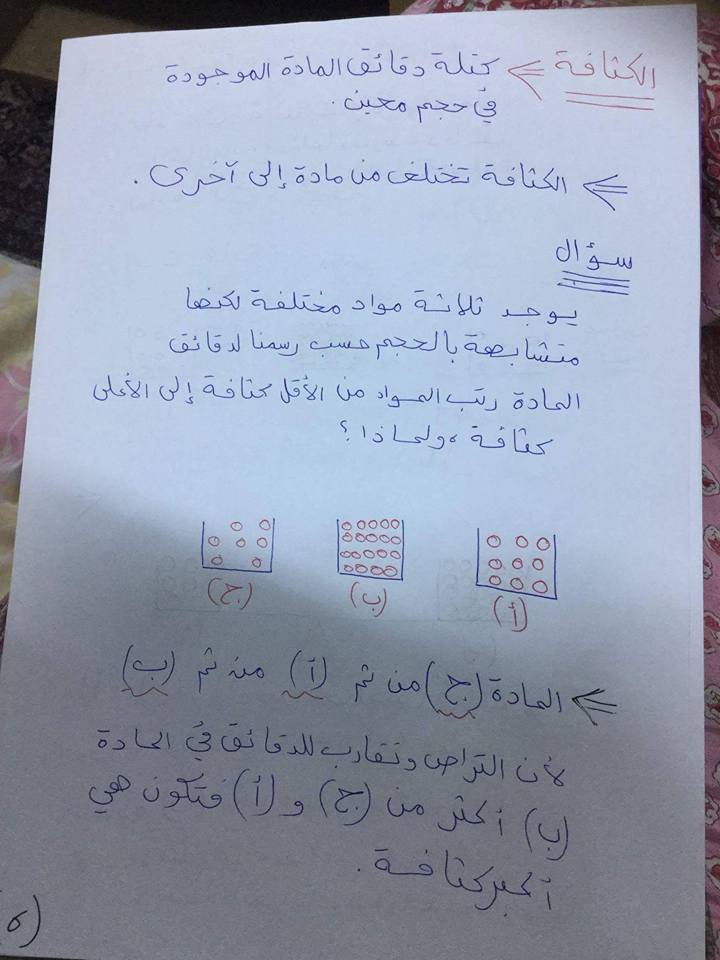 الكثافة ⇐ كتلة دقائق المادة الموجودة
في حجم معين.
⇐ الكثافة تختلف من مادة إلى آخرى.
سؤال
يوجد ثلاثة مواد مختلفة لكنها
متشابهة بالحجم حسب رسمنا لدقائق
المادة رتب المواد من الأقل كثافة إلى الأعلى
كثافة، ولماذا؟
(أ) (ب) (ج)
⇐ المادة (ج) من ثم (أ) من ثم (ب)
لأن التراص وتقارب للدقائق في المادة
(ب) أكثر من (ج) و (أ) فتكون هي
أكبر كثافة.